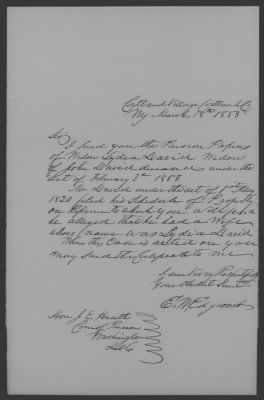 Cortland Village Cortland Co
NY March 18th 1853
Sir
I send you the Pension Papers
of Widow Lydia David Widow
of John David deceased under the
Act of February 3d 1853
Mr David under the act of 1st May
1820 filed his Schedule of Property
on reference to which you will find
he alleged that he had a Wife
whose name was Lydia David
When this Case is acted on you
may send the Certificate to me
I am Very Respectfully
Your Obedient Servt
Hon J. E. Heath
Com of Pensions
Washington